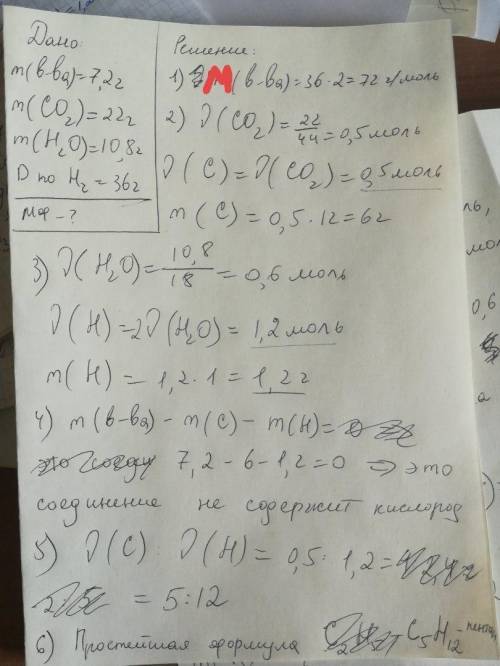 Дано:
m(в-ва)=7,2г
m(CO₂)=22г
m(H₂O)=10,8г
D по H₂=36г
Мф-?
Решение:
1) M(в-ва)=36·2=72 г/моль
2) ν(CO₂)=22/44=0,5моль
ν(C)=ν(CO₂)=0,5моль
m(C)=0,5·12=6г
3) ν(H₂O)=10,8/18=0,6моль
ν(H)=2ν(H₂O)=1,2моль
m(H)=1,2·1=1,2г
4) m(в-ва)-m(C)-m(H)=
7,2-6-1,2=0 ⇒ это
соединение не содержит кислород
5) ν(C) ν(H)=0,5:1,2=
=5:12
6) Простейшая формула C₅H₁₂-пентан
0,6